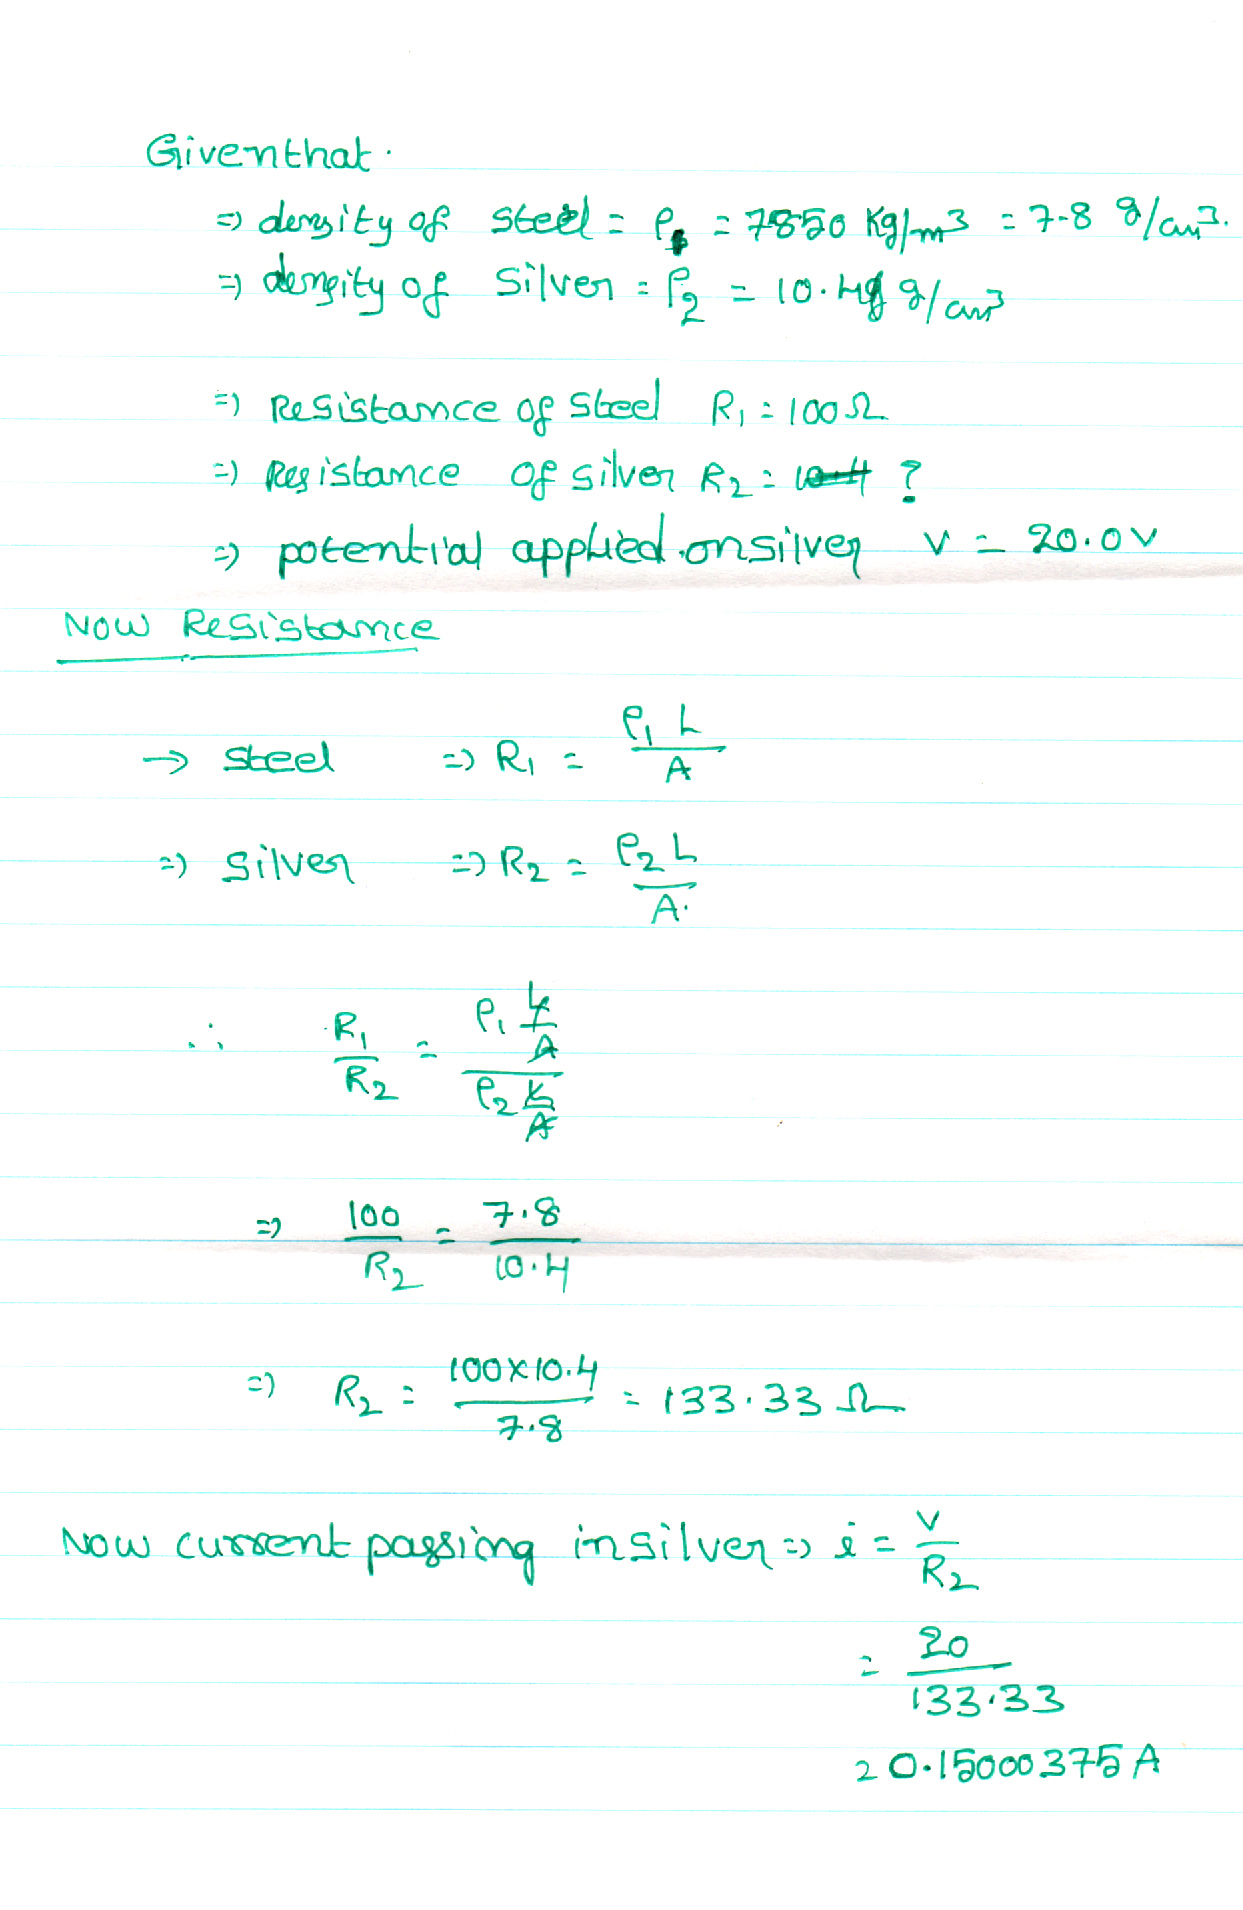 Given that.
=> density of steel = ρ₁ = 7850 Kg/m³ = 7.8 g/cm³.
=> density of silver = ρ₂ = 10.49 g/cm³
=> Resistance of steel R₁ = 100Ω
=> Resistance of silver R₂ = ?
=> potential applied on silver V = 20.0V
Now Resistance
→ steel => R₁ = ρ₁ L / A
=> silver => R₂ = ρ₂ L / A.
∴ R₁/R₂ = (ρ₁ L/A) / (ρ₂ L/A)
=> 100/R₂ = 7.8/10.4
=> R₂ = 100×10.4 / 7.8 = 133.33 Ω
Now current passing in silver => i = V/R₂
= 20/133.33
= 0.15000375 A